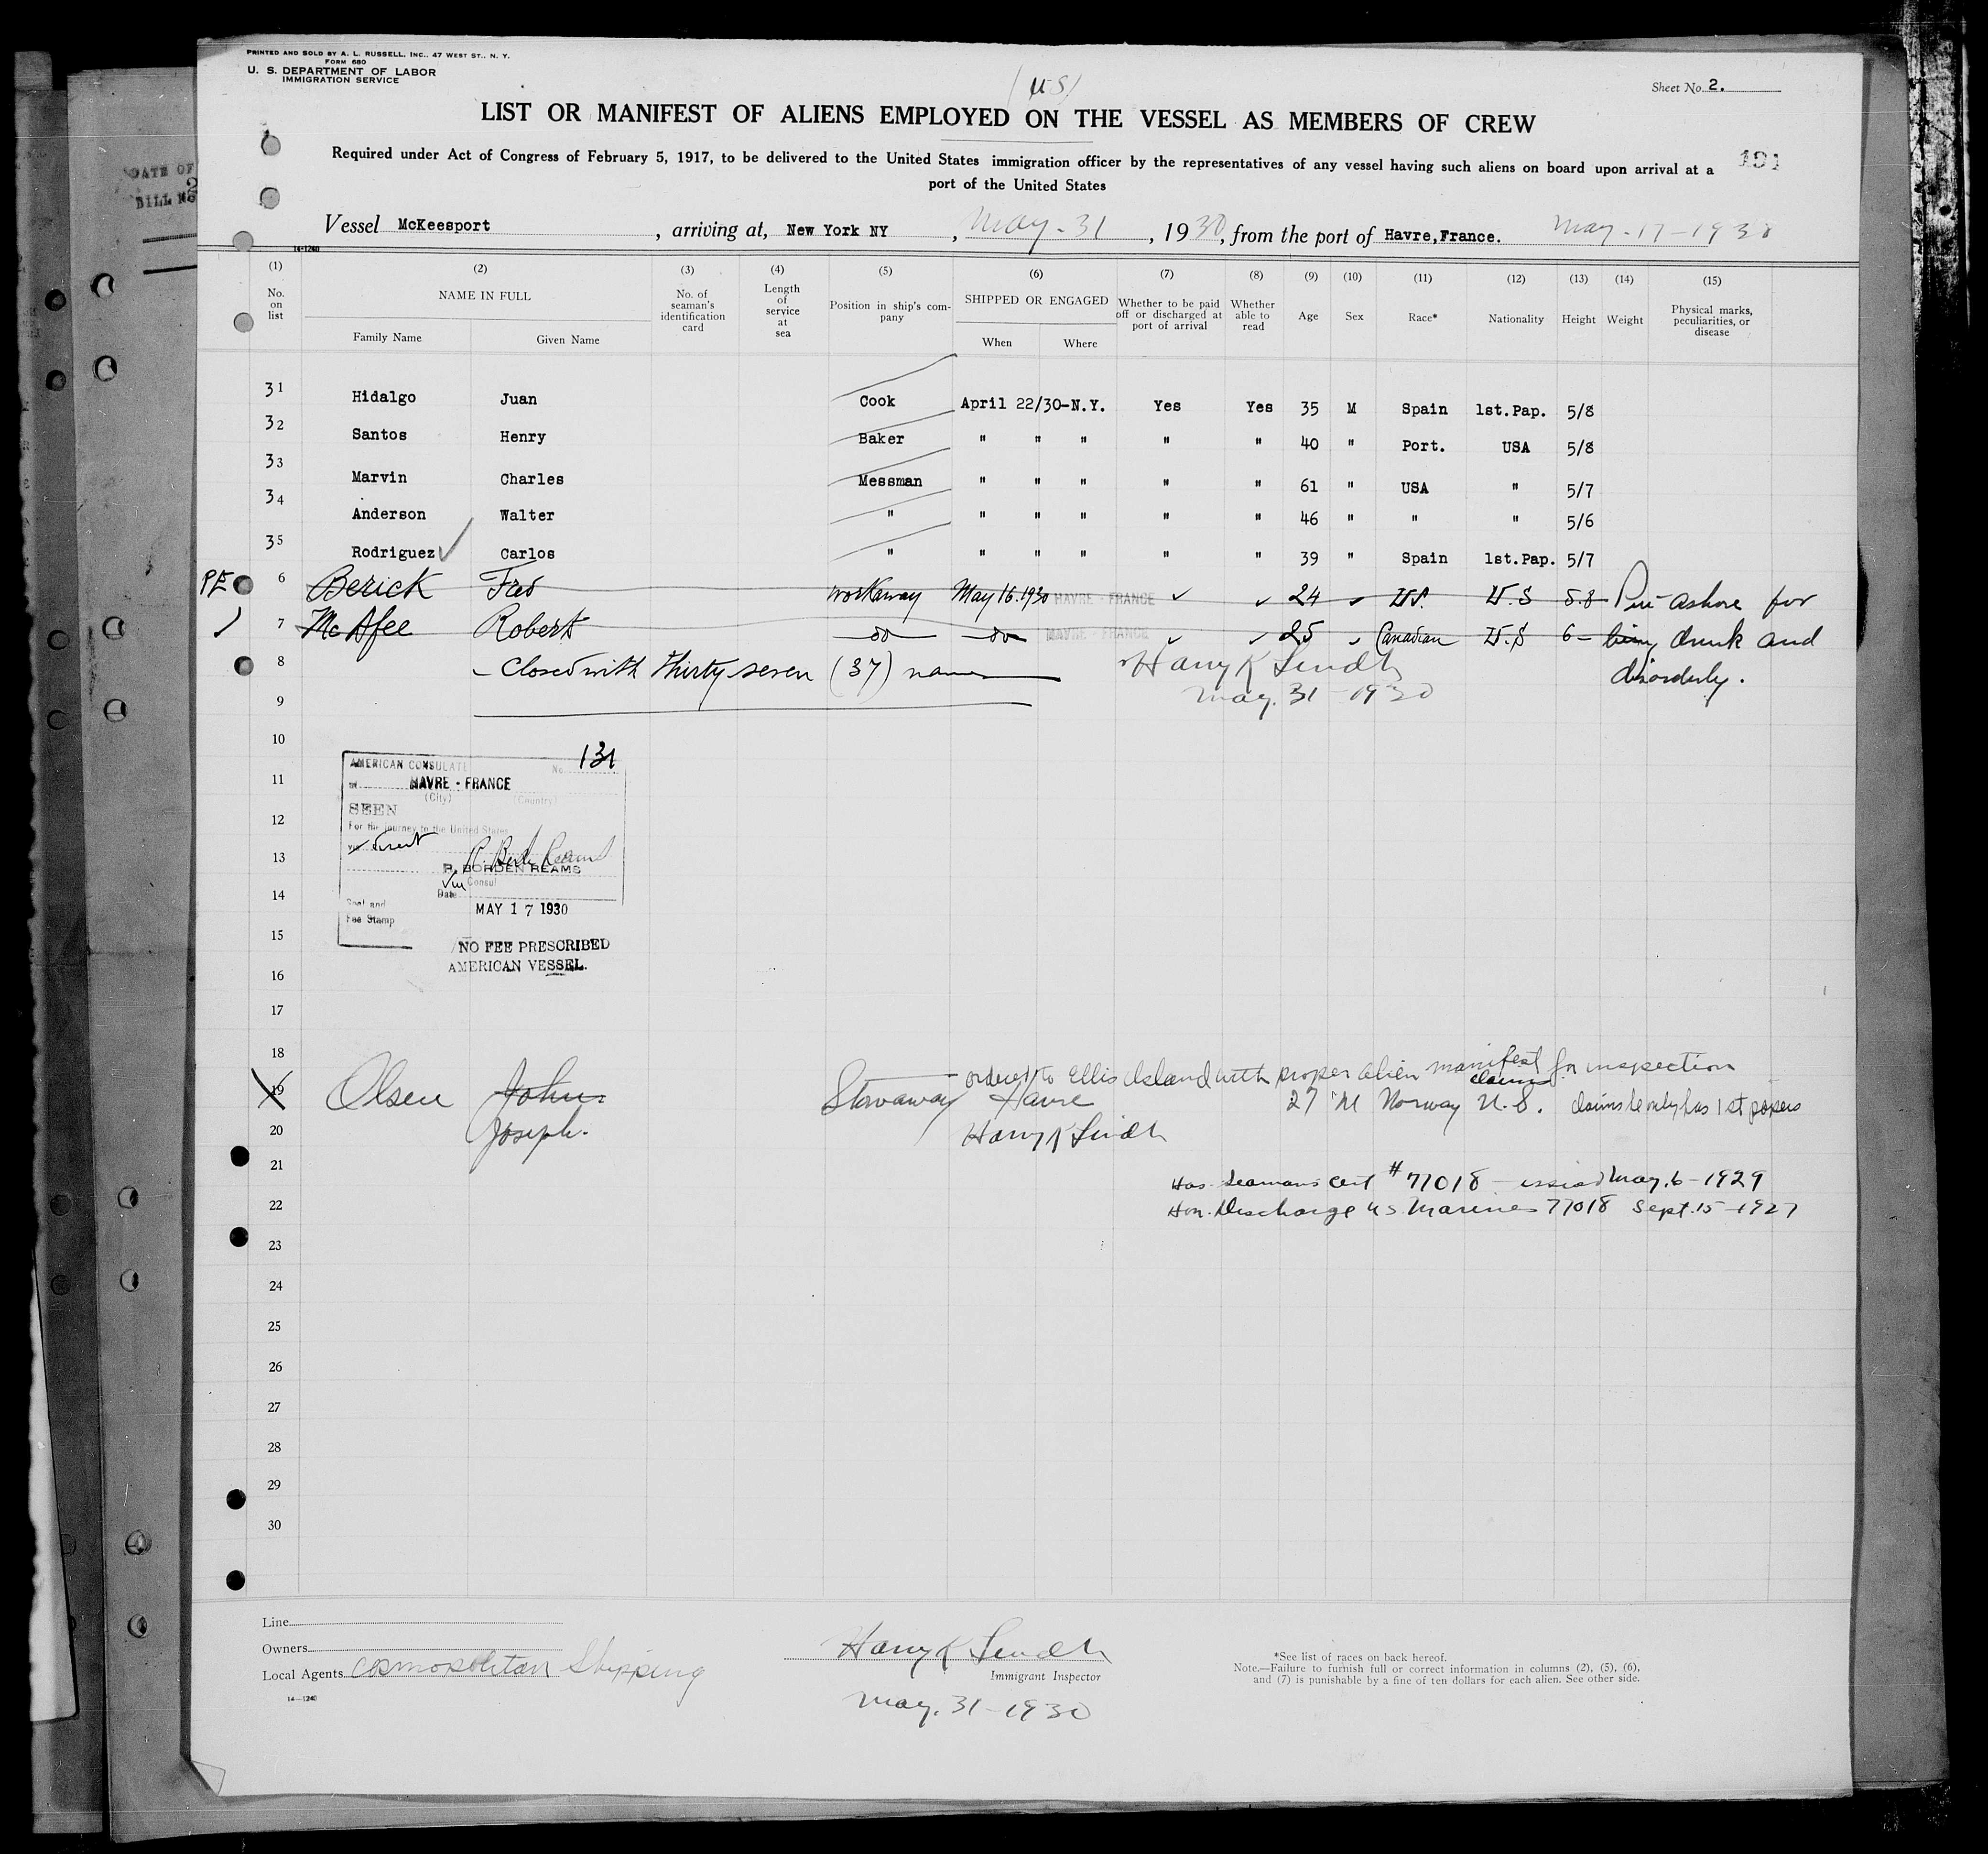 PRINTED AND SOLD BY A. L. RUSSELL, INC., 47 WEST ST., N. Y.
FORM 680
U. S. DEPARTMENT OF LABOR
IMMIGRATION SERVICE
(US)
Sheet No. 2.
LIST OR MANIFEST OF ALIENS EMPLOYED ON THE VESSEL AS MEMBERS OF CREW
Required under Act of Congress of February 5, 1917, to be delivered to the United States immigration officer by the representatives of any vessel having such aliens on board upon arrival at a
port of the United States
191
Vessel McKeesport, arriving at, New York NY, May-31, 1930, from the port of Havre, France. May-17-1930
14-1240
(1) (2) (3) (4) (5) (6) (7) (8) (9) (10) (11) (12) (13) (14) (15)
No. on list
NAME IN FULL
Family Name Given Name
No. of seaman's identification card
Length of service at sea
Position in ship's company
SHIPPED OR ENGAGED
When Where
Whether to be paid off or discharged at port of arrival
Whether able to read
Age
Sex
Race*
Nationality
Height
Weight
Physical marks, peculiarities, or disease
31 Hidalgo Juan Cook April 22/30-N.Y. Yes Yes 35 M Spain 1st.Pap. 5/8
32 Santos Henry Baker " " " " " 40 " Port. USA 5/8
33 Marvin Charles Messman " " " " " 61 " USA " 5/7
34 Anderson Walter " " " " " " 46 " " " 5/6
35 Rodriguez Carlos " " " " " " 39 " Spain 1st.Pap. 5/7
PE 6 Berick Fred workaway May 16.1930 HAVRE - FRANCE 24 U.S. U.S 5.8 Put ashore for
7 McAfee Robert do do HAVRE - FRANCE 25 Canadian U.S 6 being drunk and
8 Closed with thirty seven (37) names Harry K Lindh disorderly.
9 May. 31-1930
10
11
12
13
14
15
16
17
18
AMERICAN CONSULATE No. 131
HAVRE - FRANCE
(City) (Country)
SEEN
For the journey to the United States
via direct
R. BORDEN REAMS
Consul
Date
MAY 17 1930
Seal and
Fee Stamp
NO FEE PRESCRIBED
AMERICAN VESSEL.
ordered to Ellis Island with proper alien manifest for inspection
claims
19 Olsen John Stowaway Havre 27 M Norway U.S. claims he only has 1st papers
20 Joseph. Harry K Lindh
21 Has Seamans cert #77018 issued May. 6-1929
22 Hon. Discharge US Marines 77018 Sept. 15-1927
23
24
25
26
27
28
29
30
Line
Owners
Local Agents Cosmopolitan Shipping
14-1240
Harry K Lindh
Immigrant Inspector
May. 31-1930
*See list of races on back hereof.
Note.—Failure to furnish full or correct information in columns (2), (5), (6),
and (7) is punishable by a fine of ten dollars for each alien. See other side.
DATE OF
BILL NO
2